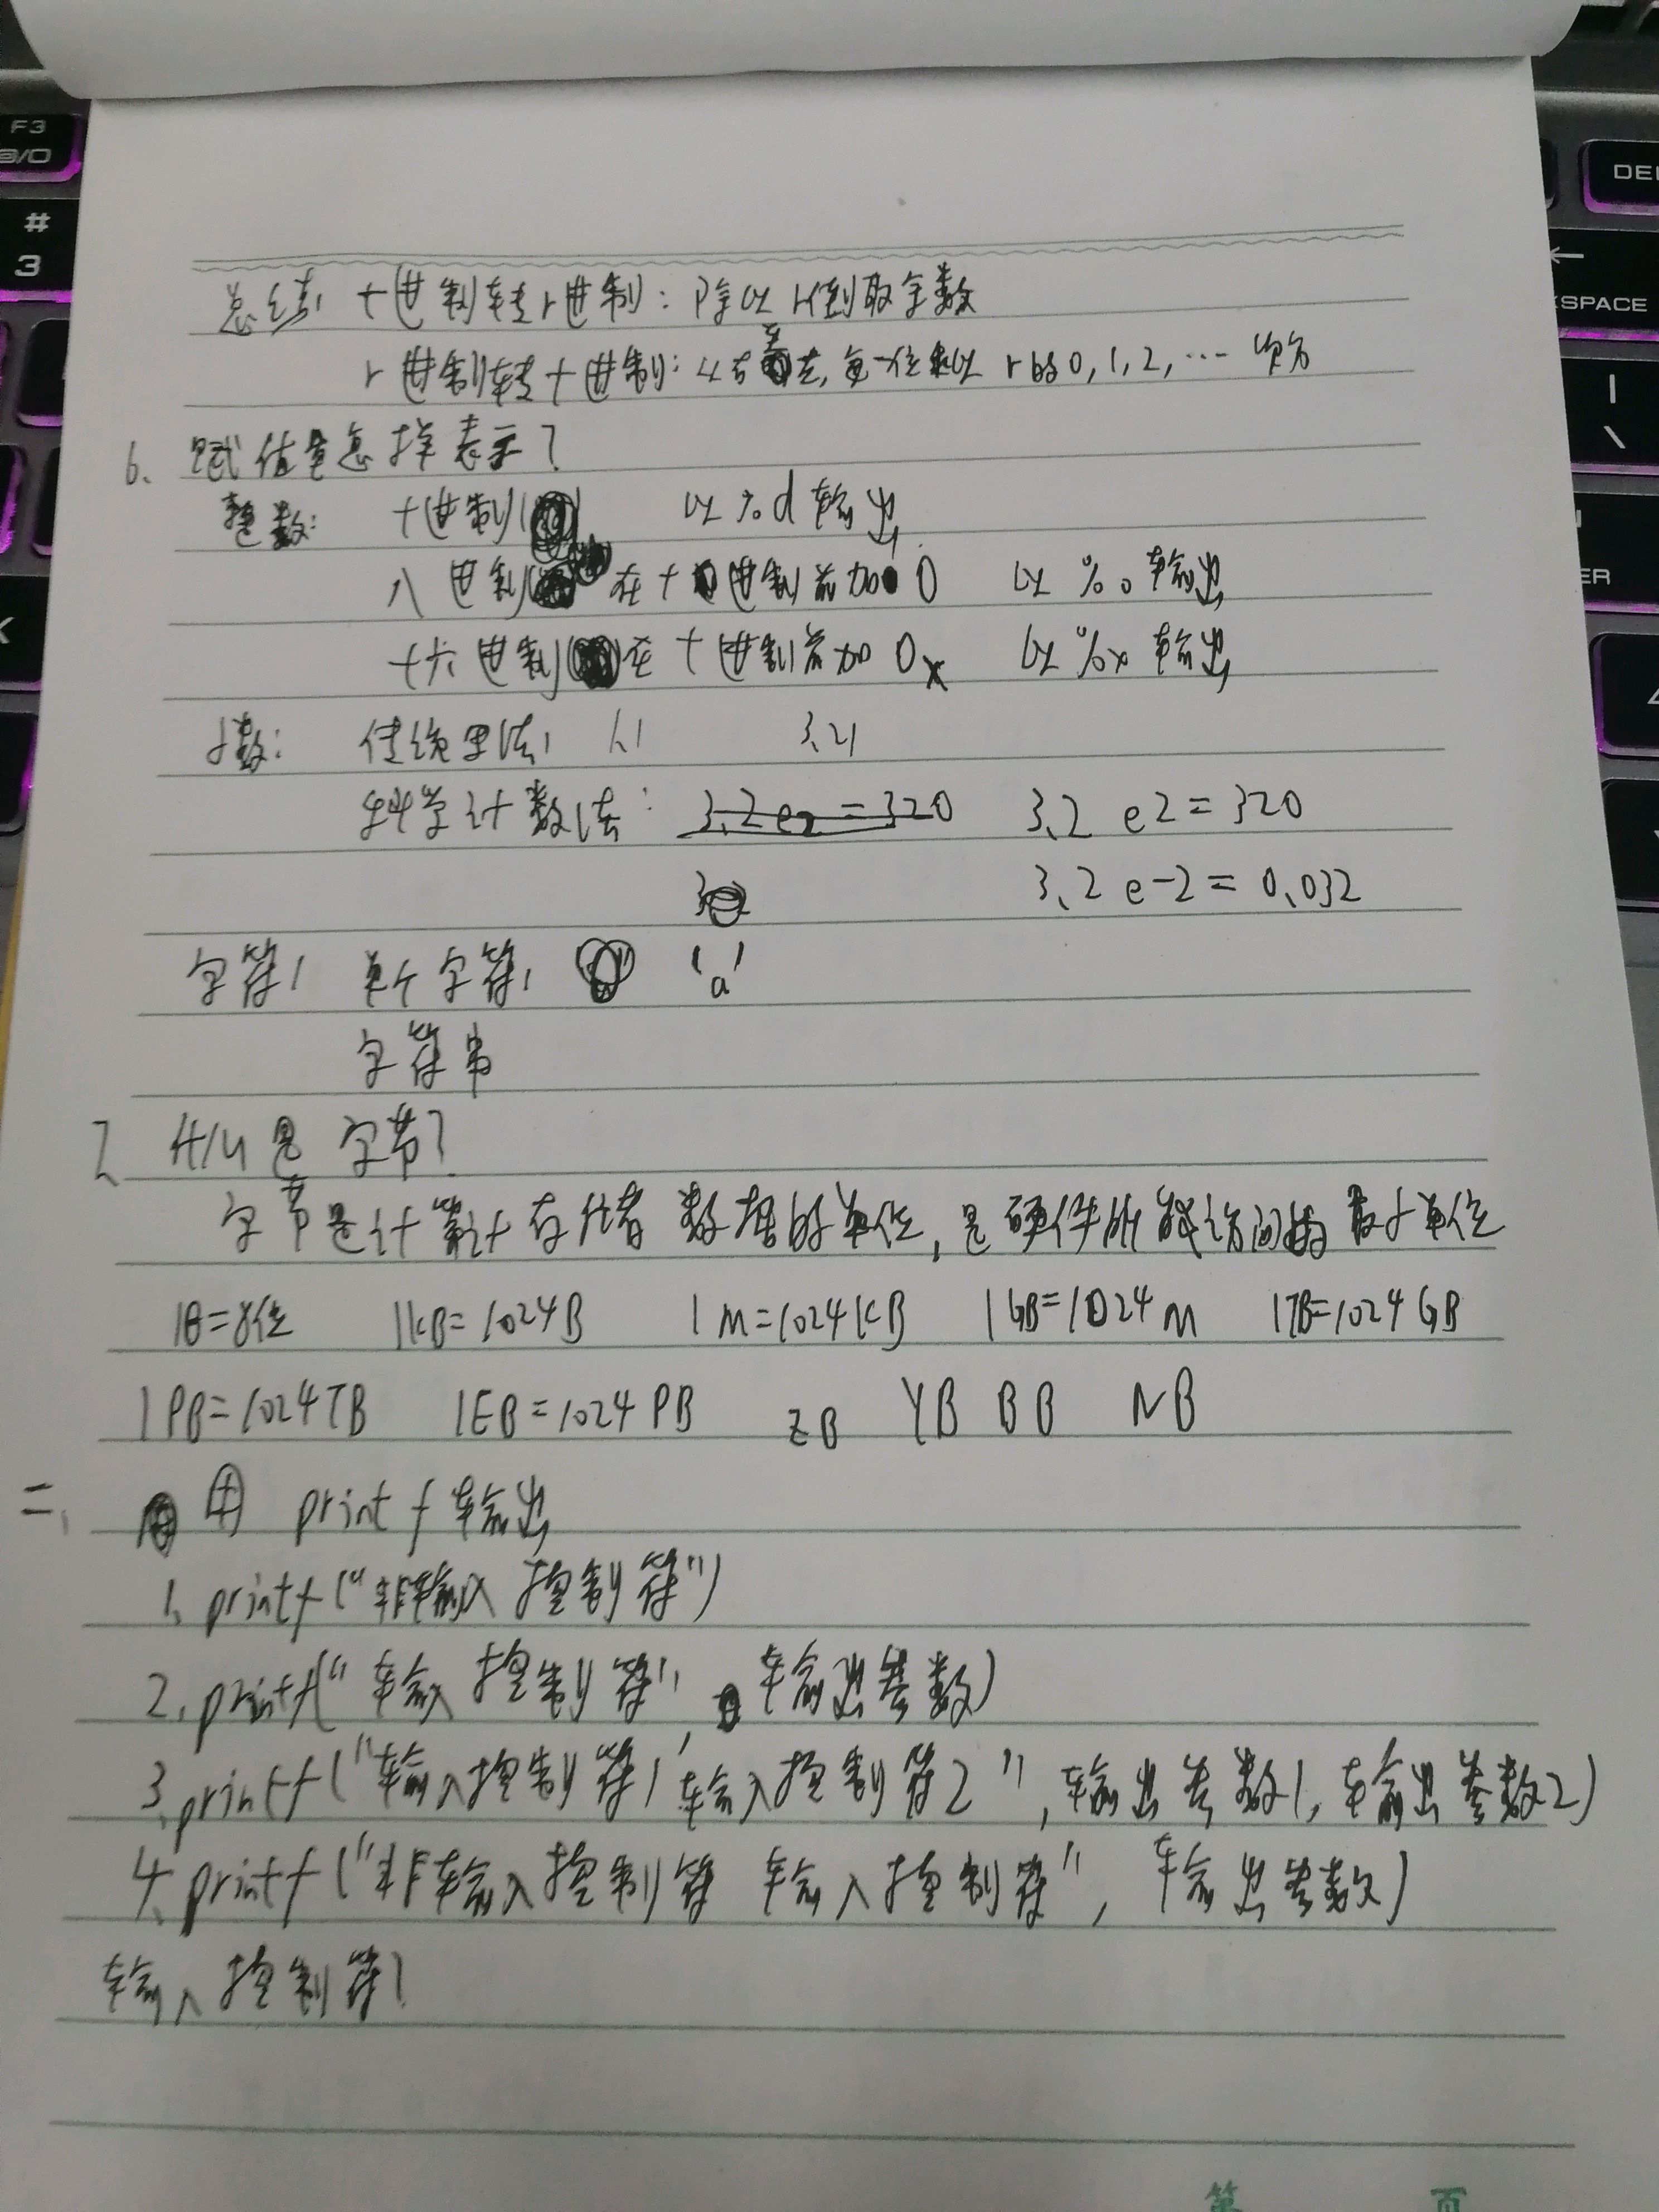 总结: 十进制转r进制: 除以r倒取余数
r进制转十进制: 每一位乘以r的0,1,2,…次方
6、赋值 怎样表示?
整数: 十进制 以%d输出
八进制 在十进制前加0 以%o输出
十六进制 在十进制前加0x 以%x输出
小数: 传统 法: 1.1 3.21
科学计数法: 3.2e2=320 3.2 e2=320
3.2 e-2=0.032
字符: 单个字符: 'a'
字符串
7、什么是字节?
字节是计算计存储数据的单位,是硬件所能访问的最小单位
1B=8位 1KB=1024B 1M=1024KB 1GB=1024M 1TB=1024GB
1PB=1024TB 1EB=1024PB ZB YB BB NB
二、用 printf输出
1、printf("非输入控制符")
2、printf("输入控制符", 输出参数)
3、printf("输入控制符1 输入控制符2", 输出参数1, 输出参数2)
4、printf("非输入控制符 输入控制符", 输出参数)
输入控制符?
第 页
F3
@/O
#
3
DEL
←
SPACE
|
\
ER
K